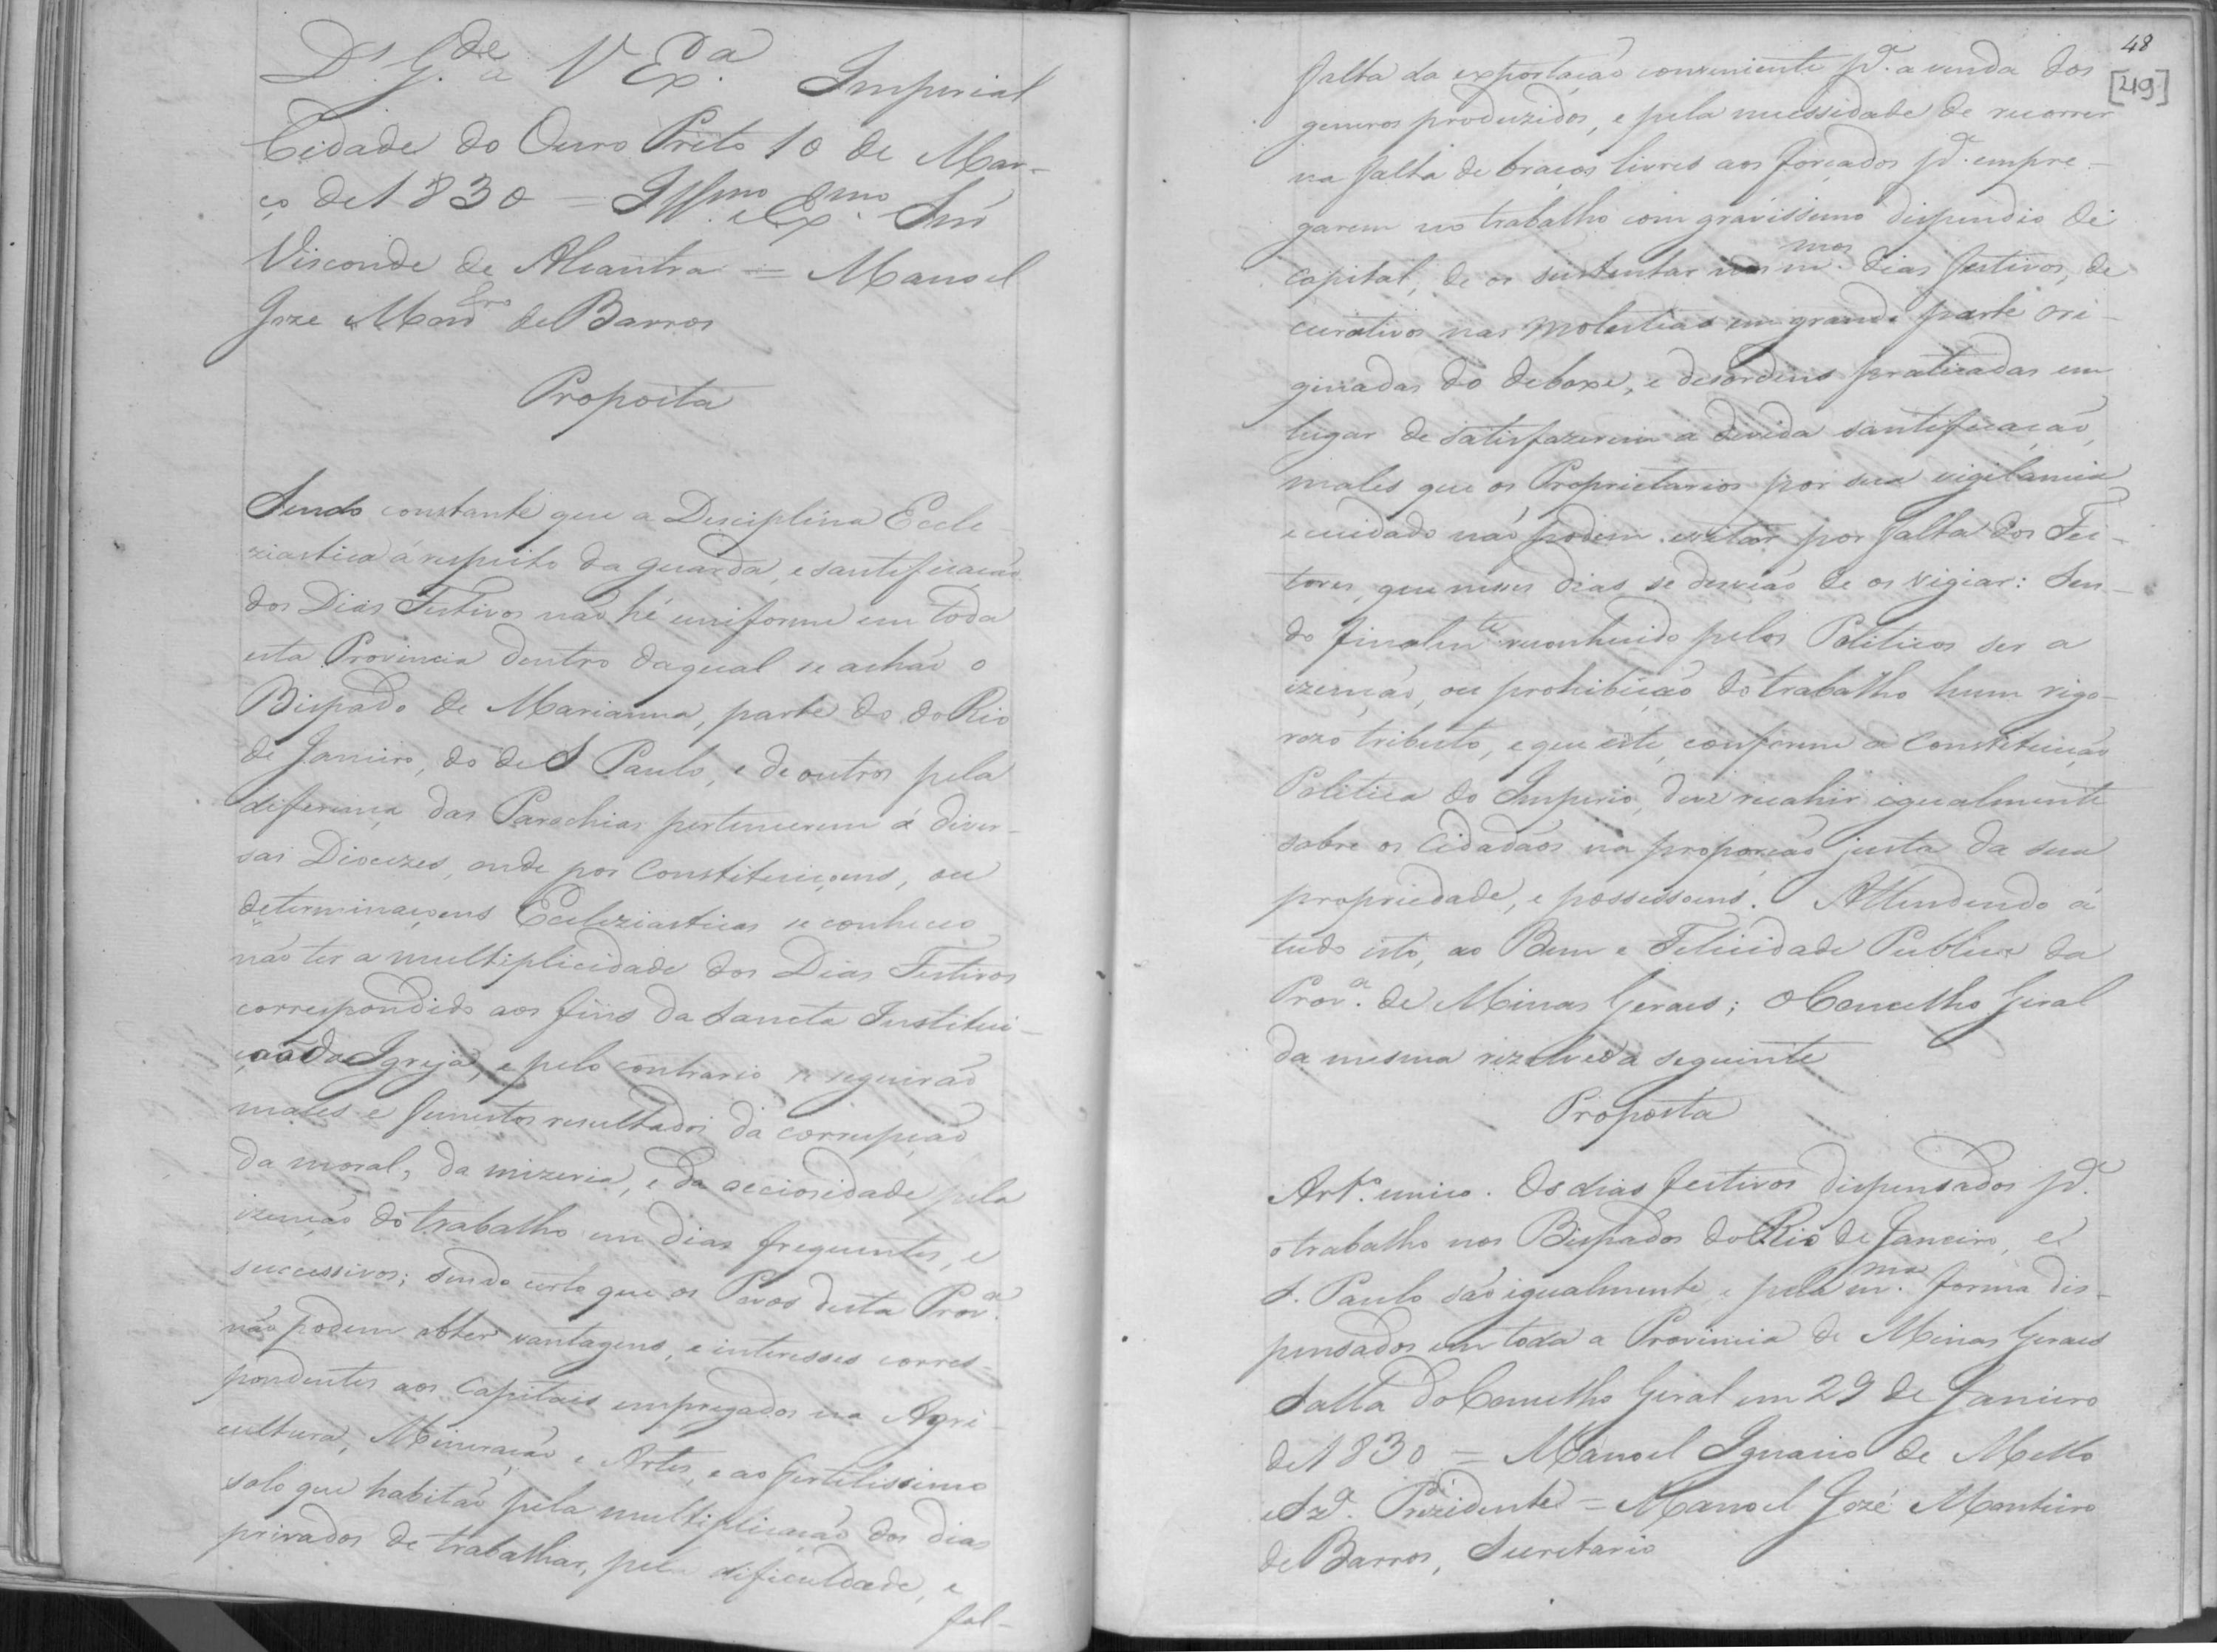 Ds. G.de a V Ex.ca Imperial
Cidade do Ouro Preto 10 de Mar-
ço de 1830 = Illmo. e Exmo. Snr
Visconde de Alcantra = Manoel
Joze Montro de Barros
Proposta
Sendo constante que a Disciplina Eccle-
ziastica á respeito da guarda, e santificação
dos Dias Festivos não hé uniforme em toda
esta Provincia dentro daqual se achão o
Bispado de Marianna, parte do do Rio
de Janeiro, do de S Paulo, e de outros pela
diferença das Parochias pertencerem á diver-
sas Diocezes, onde por Constituiçoens, ou
determinaçoens Ecleziasticas se conheceo
não ter a multiplicidade dos Dias Festivos
correspondido aos fins da Sancta Institui-
ção da Igreja, e pelo contrario se seguirão
males e funestos resultados da corrupção
da moral, da mizeria, e da occiosidade pela
izenção do trabalho em dias frequentes, e
successivos; sendo certo que os Povos desta Prov.a
não podem obter vantagens, e interesses corres-
pondentes aos Capitais empregados na Agri-
cultura, Mineração e Artes, e ao fertelissimo
solo que habitão pela multiplicação dos dias
privados de trabalhar, pela dificuldade, e
fal-
48
[49]
falta da exportação conveniente p.a a venda dos
generos produzidos, e pela necessidade de recorrer
na falta de braços livres aos forçados p.a empre-
garem no trabalho com gravissimo dispendio de
capital, de os sustentar nos m.mos dias festivos, de
curativos nas molestias em grande parte ori-
ginadas do deboxe, e desordens praticadas em
lugar de satisfazerem a devida santificação,
males que os Proprietarios por sua vigilancia
e cuidado não podem evitar por falta dos Fei-
tores, que nesses dias se desvião de os vigiar: Sen-
do finalm.te reconhecido pelos Politicos ser a
izenção, ou prohibição do trabalho hum rigo-
rozo tributo, e que este, conforme a Constituição
Politica do Imperio, deve recahir igualmente
sobre os Cidadãos na proporção justa da sua
propriedade, e possessoens. Attendendo á
tudo isto, ao Bem e Felicidade Publica da
Prov.a de Minas Geraes; o Concelho Geral
da mesma rezolveo a seguinte
Proposta
Art.o unico. Os dias festivos dispensados p.a
o trabalho nos Bispados do Rio de Janeiro, e
S. Paulo são igualmente, e pela m.ma forma dis-
pensados em toda a Provincia de Minas Geraes
Salla do Concelho Geral em 29 de Janeiro
de 1830 = Manoel Ignacio de Mello
e Sz.a Prezidente = Manoel Jozé Monteiro
de Barros, Secretario